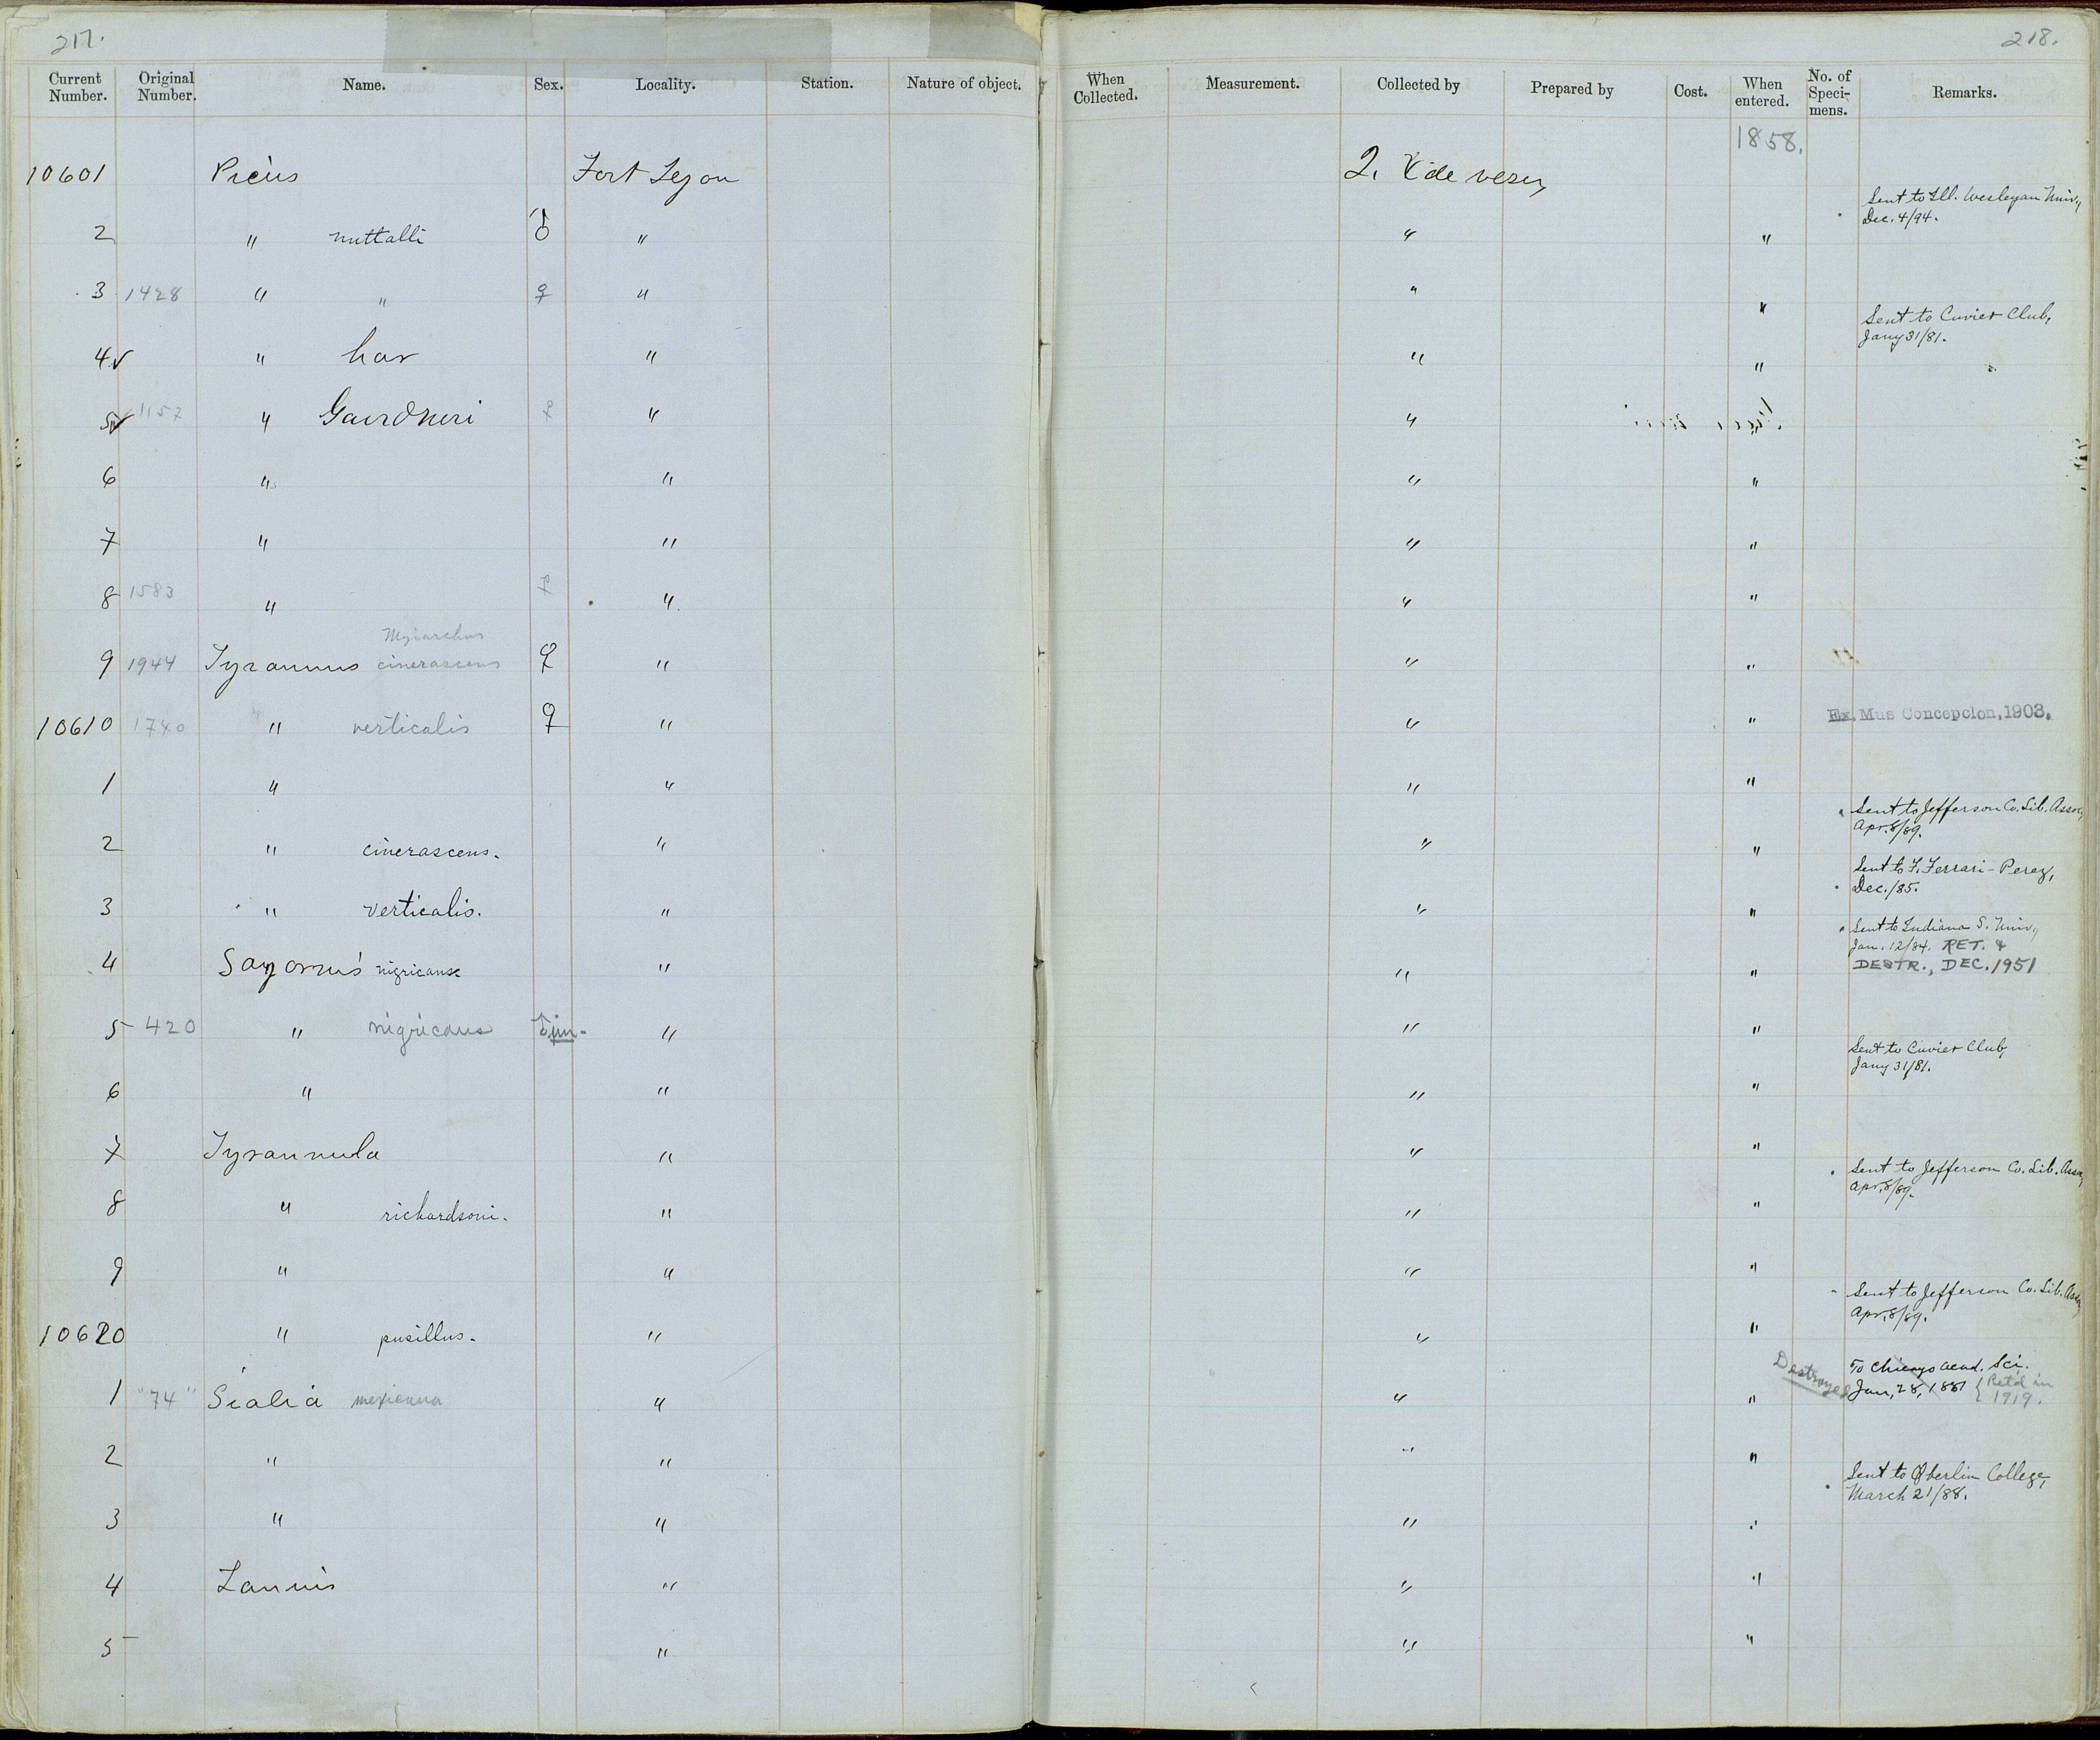 217. 218.
Current Number. Original Number. Name. Sex. Locality. Station. Nature of object. When Collected. Measurement. Collected by Prepared by Cost. When entered. No. of Speci- mens. Remarks.
1858.
10601 Picus Fort Tejon
Sent to Ill. Wesleyan Univ., Dec. 4/94.
2 " nuttalli ♂ " " "
3 1428 " " ♀ " " "
Sent to Cuvier Club, Jany 31/81.
4 ✓ " har " " "
5 ✓ 1157 " Gairdneri ♀ " "
6 " " " "
7 " " " "
8 1583 " ♀ " " "
9 1944 Tyrannus Myiarchus cinerascens ♀ " " "
10610 1740 " verticalis ♀ " " " Ex. Mus Concepcion, 1903.
1 " " " "
Sent to Jefferson Co. Lib. Assoc, Apr. 8/89.
2 " cinerascens. " " "
Sent to F. Ferrari-Perez, Dec./85.
3 " verticalis. " " "
Sent to Indiana S. Univ., Jan. 12/84. RET. & DESTR., DEC. 1951
4 Sayornis nigricans " " "
5 420 " nigricans ♂ im. " " "
Sent to Cuvier Club, Jany 31/81.
6 " " " "
7 Tyrannula " " "
Sent to Jefferson Co. Lib. Assoc, Apr. 8/89.
8 " richardsoni. " " "
9 " " " "
Sent to Jefferson Co. Lib. Assoc, Apr. 8/89.
10620 " pusillus. " " "
Destroyed To Chicago Acad. Sci. Jan, 28, 1881 { Ret'd in 1919.
1 "74" Sialia mexicana " " "
2 " " " "
Sent to Oberlin College, March 21/88.
3 " " " "
4 Lanius " " "
5 " " "